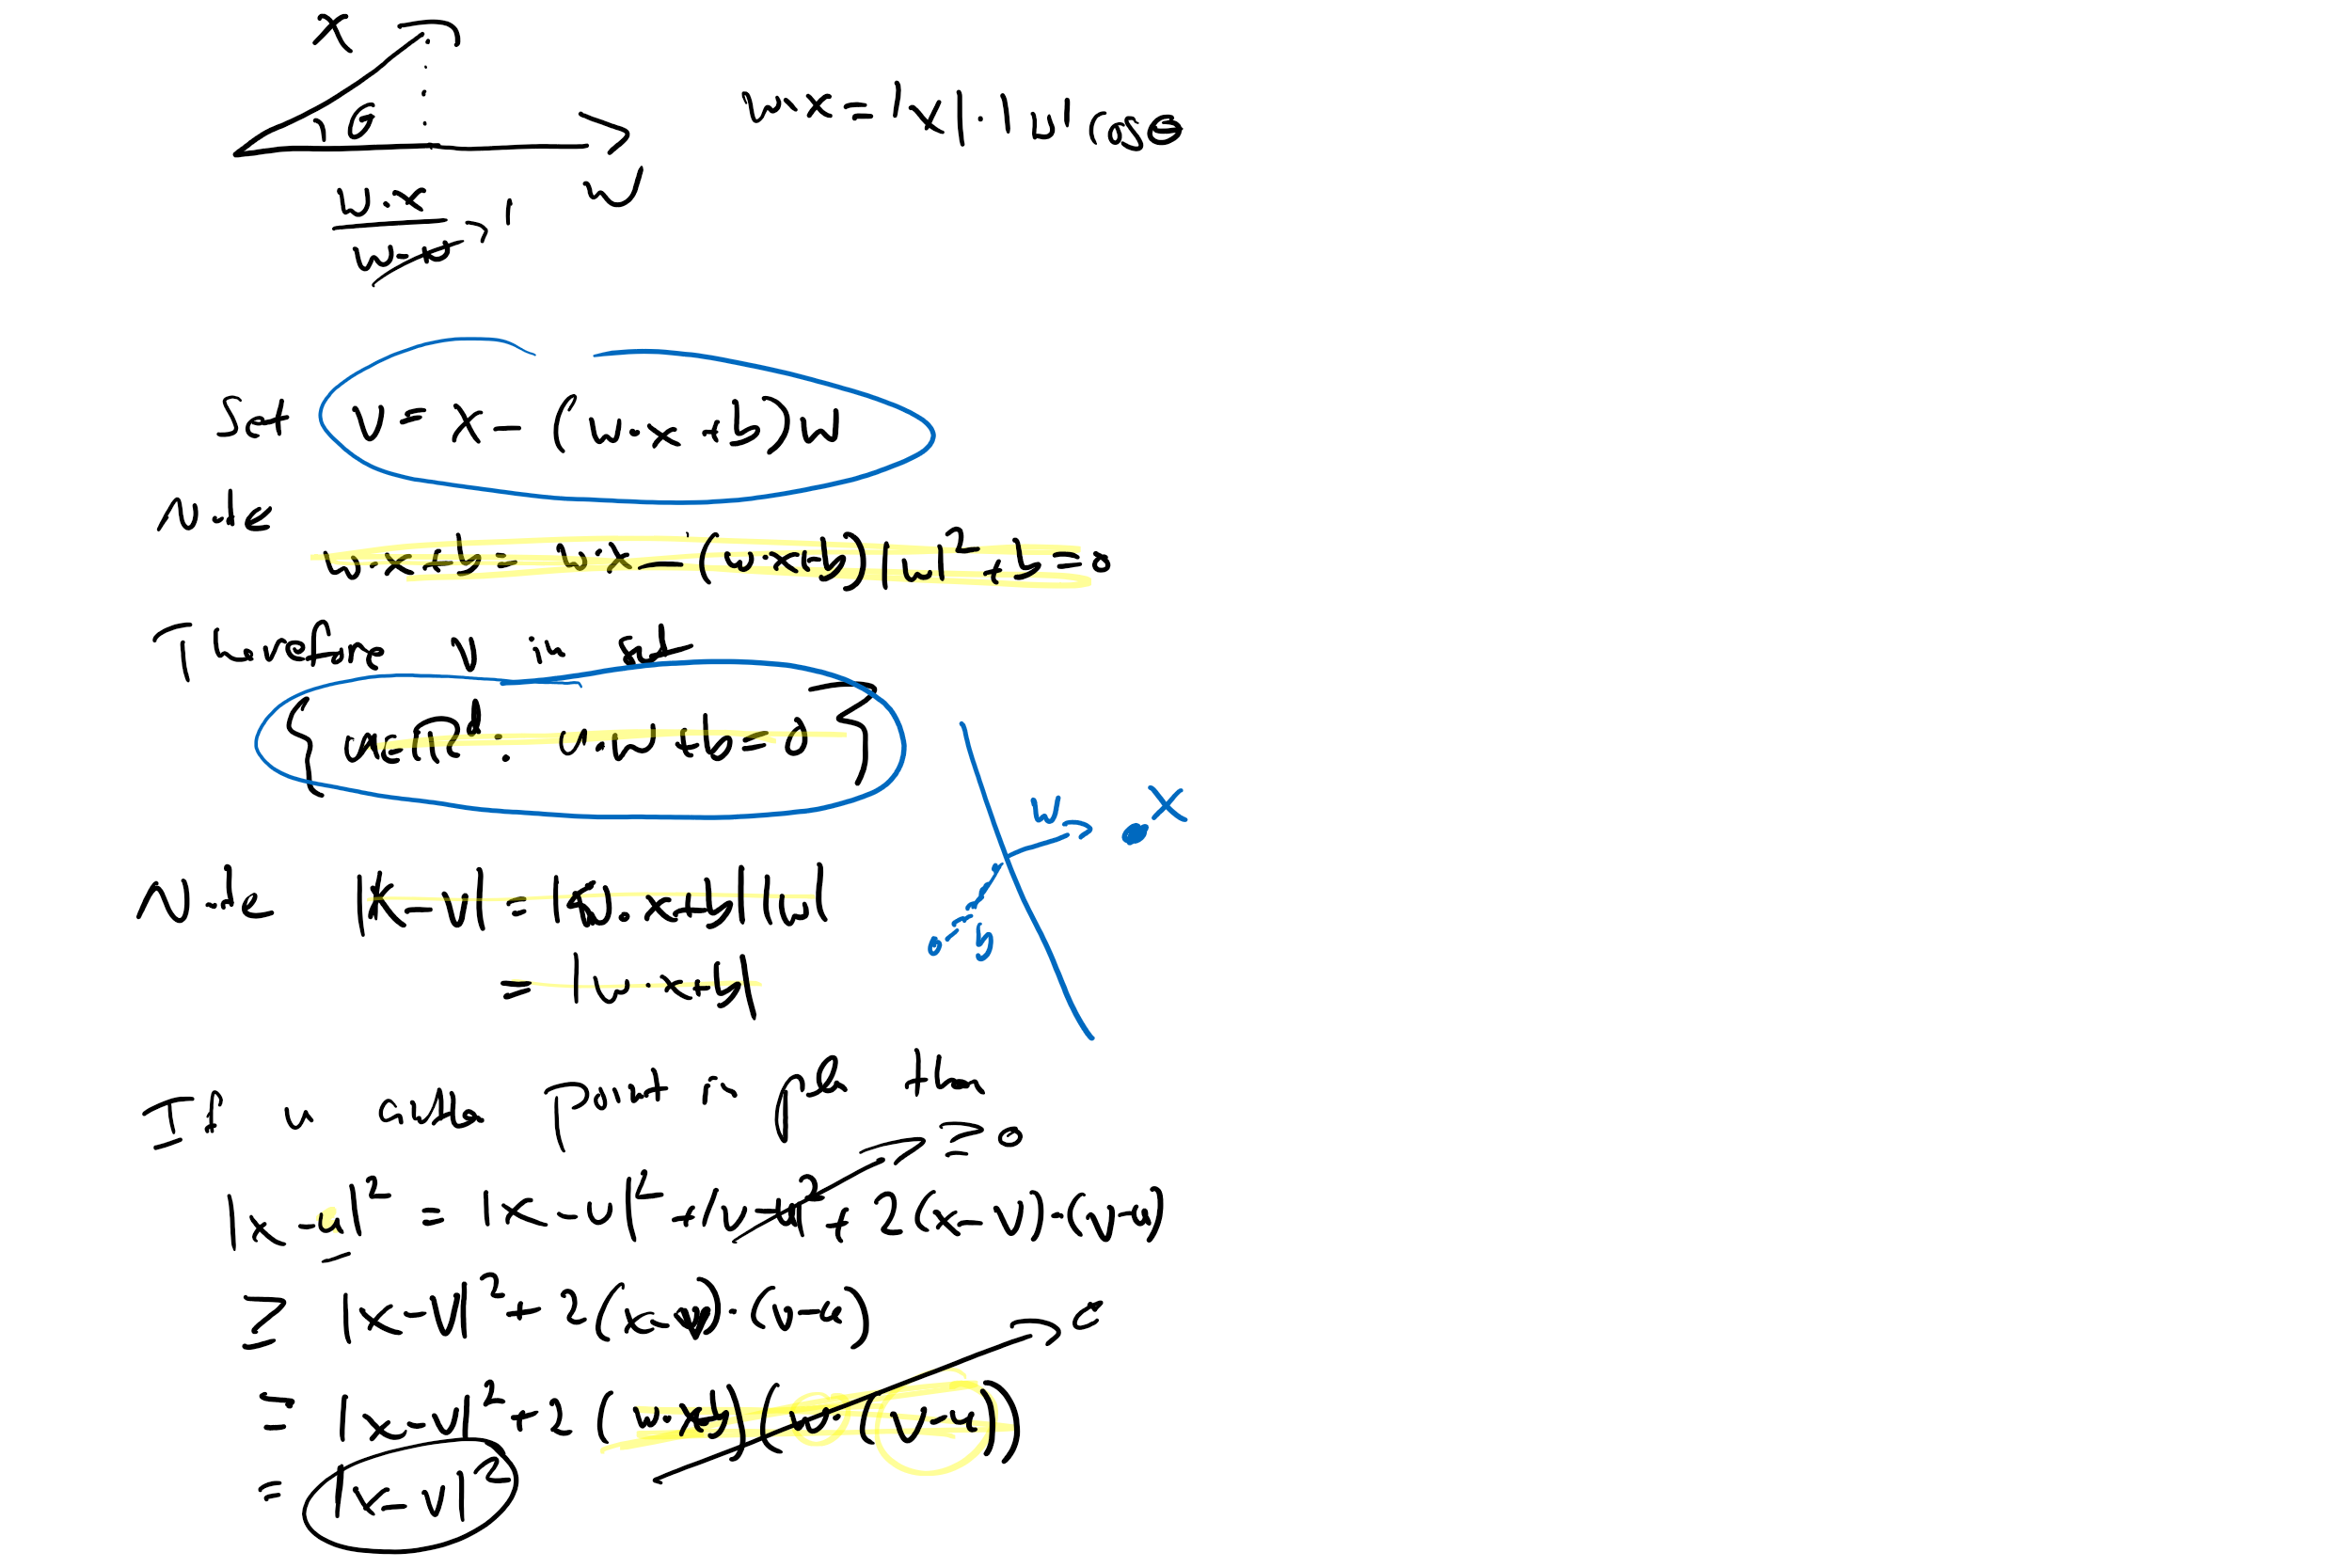 x
θ
w·x = |x|·|w| cos θ
w
w·x
w·w → 1
Set v = x - (w·x + b)w
Note
w·x + b = w·x - (w·x+b)|w|² + b = 0
Therefore v in set
{u∈ℝᵈ : u·w + b = 0}
w
x
Note |x-v| = |w·x+b||w|
0 -b
= |w·x+b|
If u another point in plane then
≥ 0
|x-u|² = |x-v|² + |v-u|² + 2(x-v)·(v-u)
≥ |x-v|² + 2(x-v)·(v-u)
0
= |x-v|² + 2(w·x+b)(w·(v-u))
= |x-v|²